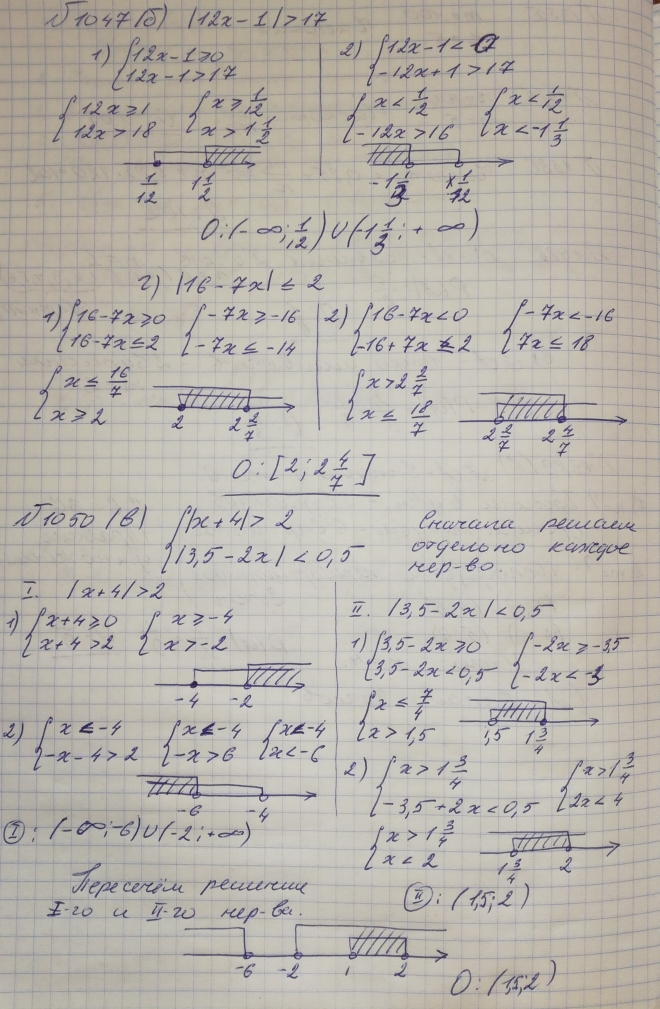 №1047(б) |12x-1|>17
1) {12x-1≥0
12x-1>17
{12x≥1
12x>18
{x≥1/12
x>1 1/2
1/12 1 1/2
2) {12x-1<0
-12x+1>17
{x<1/12
-12x>16
{x<1/12
x<-1 1/3
-1 1/3 1/12
О:(-∞;1/12)∪(-1 1/3;+∞)
г) |16-7x|≤2
1) {16-7x≥0
16-7x≤2
{-7x≥-16
-7x≤-14
{x≤16/7
x≥2
2 2 2/7
2) {16-7x<0
-16+7x≤2
{-7x<-16
7x≤18
{x>2 2/7
x≤18/7
2 2/7 2 4/7
О:[2;2 4/7]
№1050(в) {|x+4|>2
|3,5-2x|<0,5
Сначала решаем
отдельно каждое
нер-во.
I. |x+4|>2
1) {x+4≥0
x+4>2
{x≥-4
x>-2
-4 -2
2) {x<-4
-x-4>2
{x<-4
-x>6
{x<-4
x<-6
-6 -4
I: (-∞;-6)∪(-2;+∞)
II. |3,5-2x|<0,5
1) {3,5-2x≥0
3,5-2x<0,5
{-2x≥-3,5
-2x<-3
{x≤7/4
x>1,5
1,5 1 3/4
2) {x>1 3/4
-3,5+2x<0,5
{x>1 3/4
2x<4
{x>1 3/4
x<2
1 3/4 2
II: (1,5;2)
Пересечём решения
I-го и II-го нер-ва.
-6 -2 1 2
О: (1,5;2)